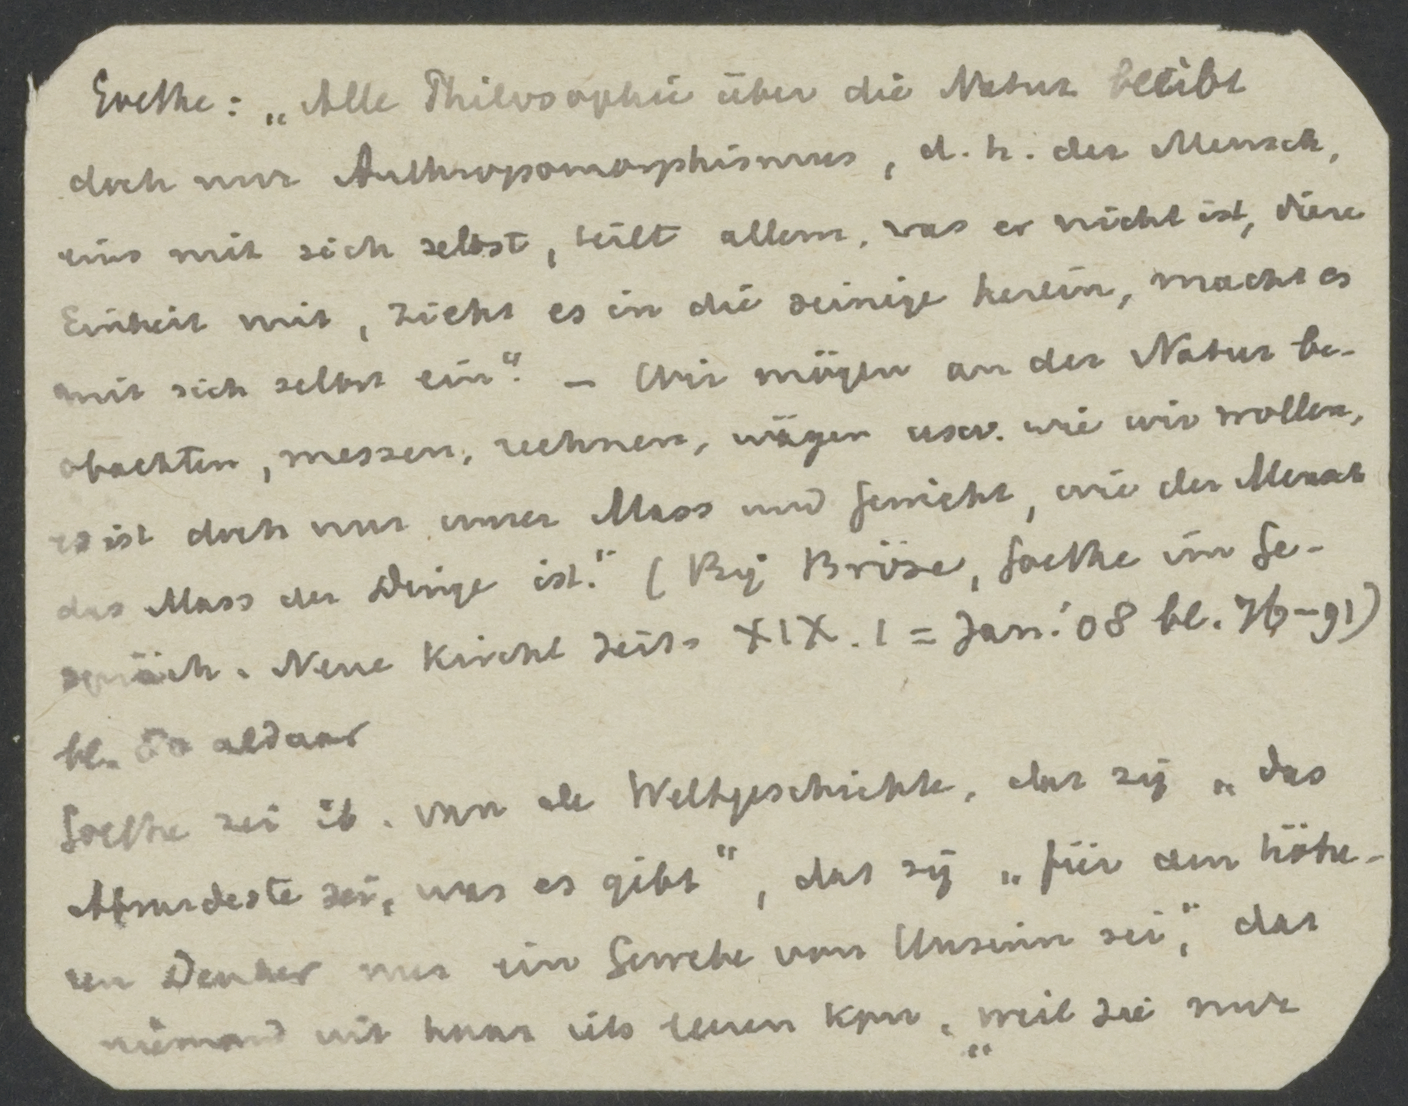 Goethe: „Alle Philosophie über die Natur bleibt
doch nur Anthropomorphismus, d.h. der Mensch,
eins mit sich selbst, teilt allem, was er nicht ist, diese
Einheit mit, zieht es in die seinige herein, macht es
mit sich selbst ein“. – Wir mögen an der Natur be-
obachten, messen, rechnen, wägen usw. wie wir wollen,
es ist doch nur unser Mass und Gewicht, wie der Mensch
das Mass der Dinge ist.“ (Bij Bröse, Goethe im Ge-
spräch. Neue Kirchl Zeits XIX.1 = Jan. '08 bl. 76-91)
bl. 80 aldaar
Goethe zei ib. van de Weltgeschichte, dat zij „das
Absurdeste sei, was es gibt“, dat zij „für den höhe-
ren Denker nur ein Gewebe von Unsinn sei“, dat
niemand uit haar iets leeren kon, „weil sie nur